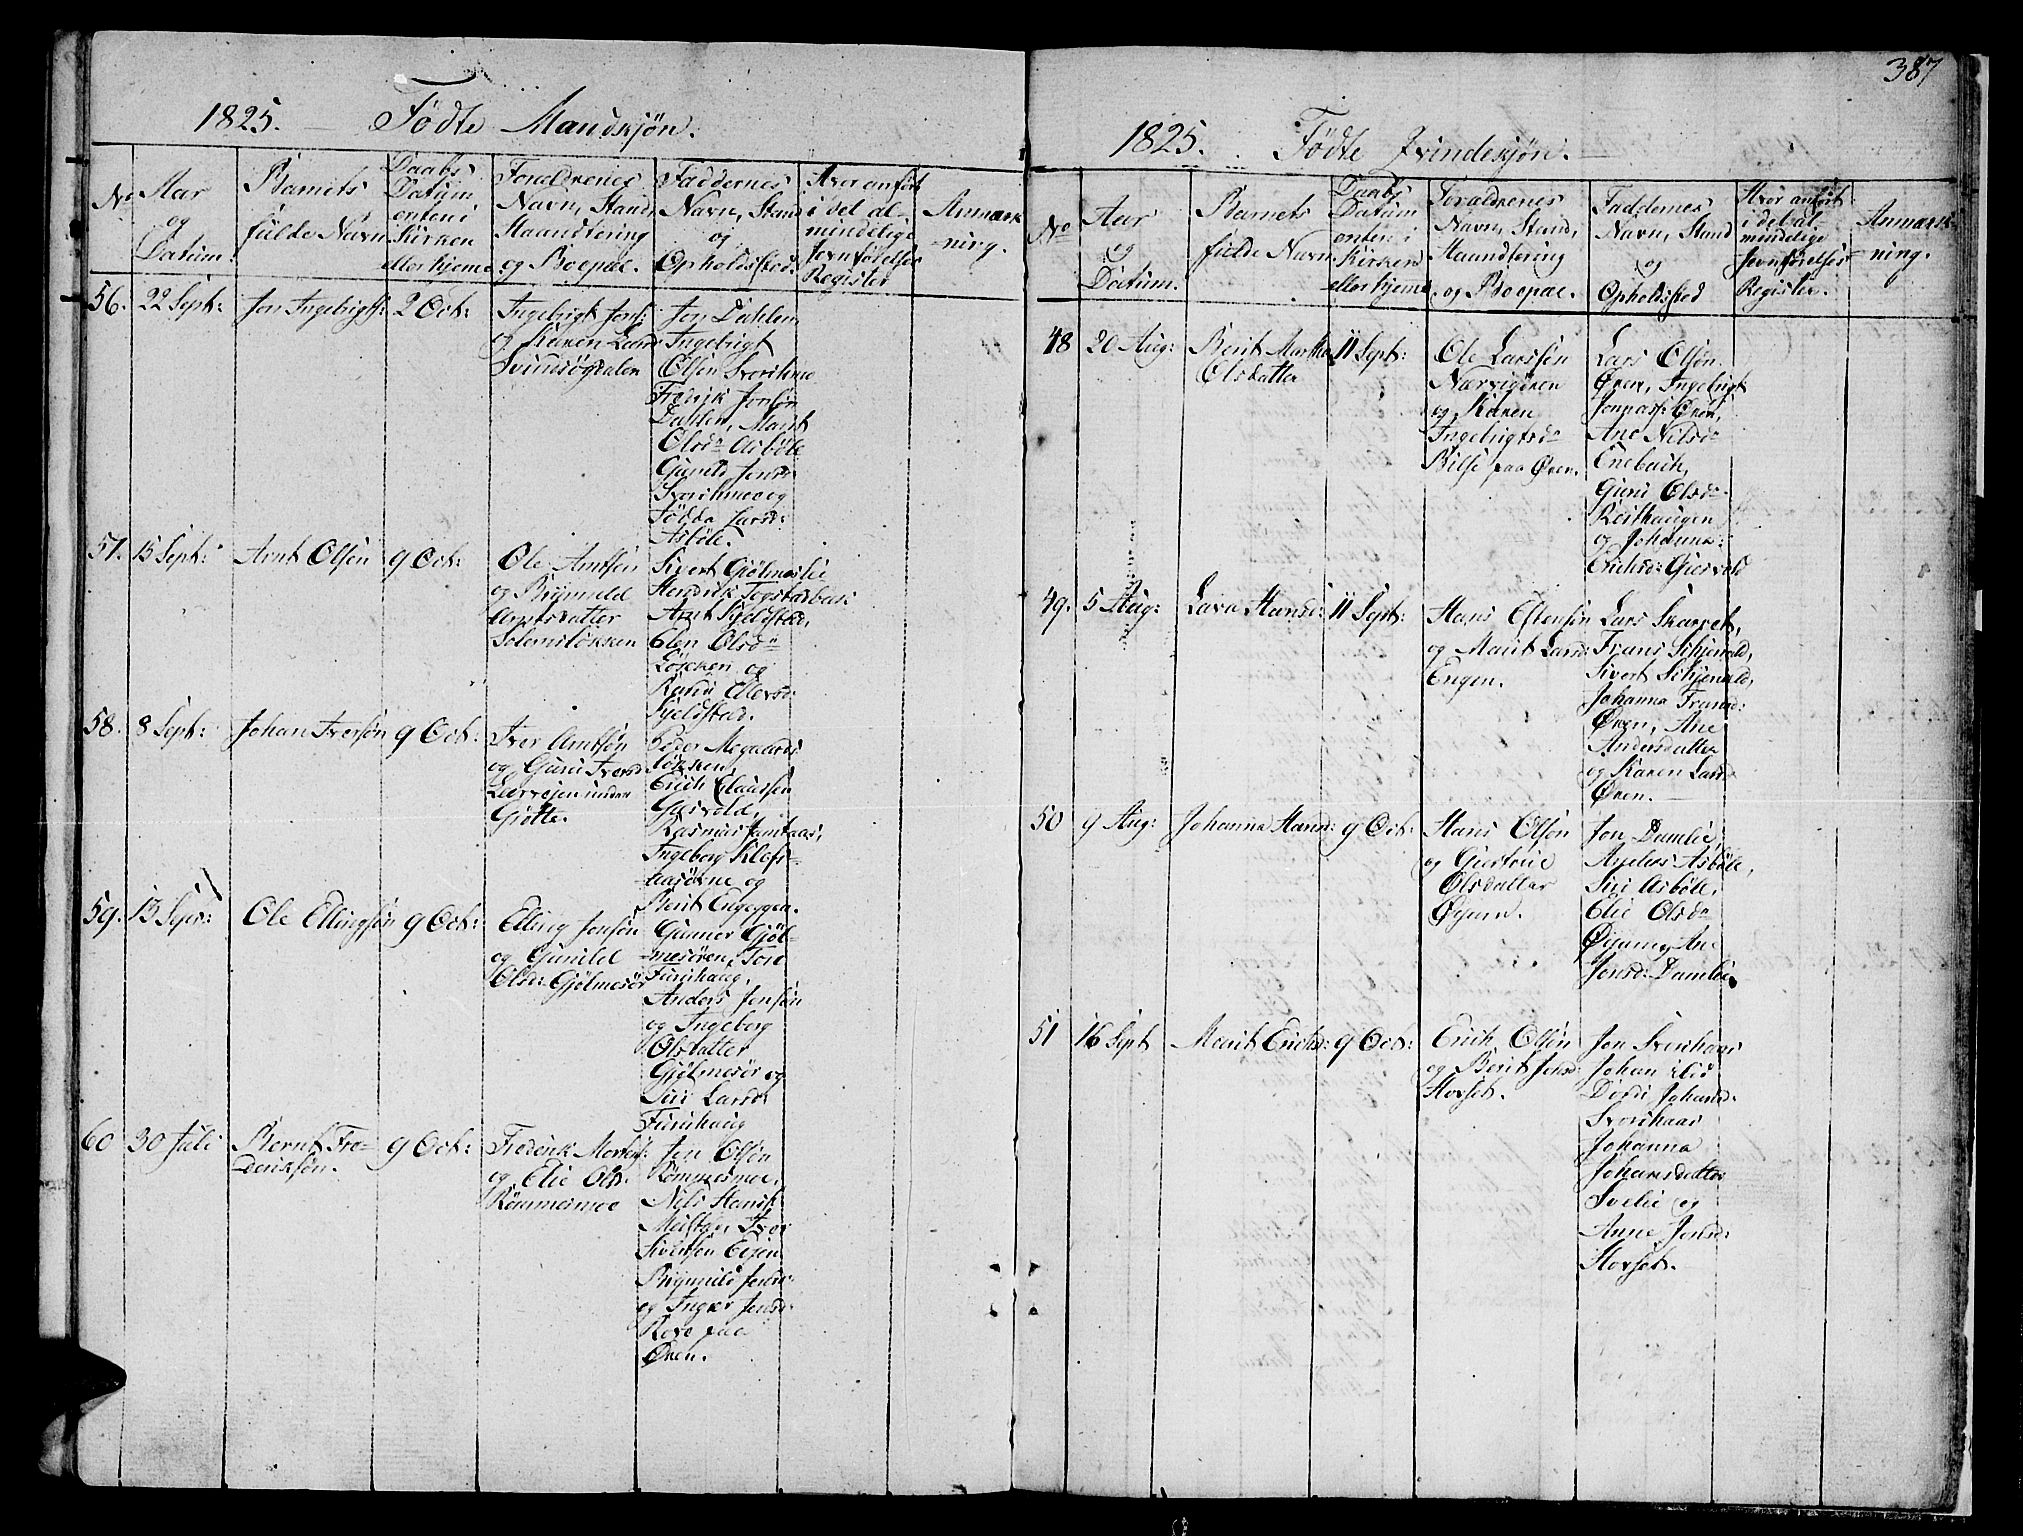 1825. — Födte Mandkjön.
No
Aar
og
Datum.
Barnets
fulde Navn
Daabs
Datum
enten i
Kirken
eller hjeme
Forældrenes
Navn, Stand,
Haandtering
og Boepæl.
Faddernes
Navn, Stand
og
Opholdsted.
Hvor anført
i det al-
mindelige
Jevnførelses
Register
Anmærk
-ning.
56. 22 Sept: Jon Ingebrigts: 2 Oct:
Ingebrigt Jons:
og Karen Lars
Jon Dahlen
Ingebrigt
Olsön Svorihmo
Fredrik Jonsön
Dahlen, Marit
Olsdr Asböle
Gunild Jonsd
Svorihmo og
Larsd:
Asböle.
57. 15 Sept: Arnt Olsön 9 Oct:
Ole Arntsön
og Brynnild
Arntsdatter
Solemslökken
Sivert Gjölmeslie
Hendrik Togstadbak:
Arnt Fjeldstad,
Elen Olsdr
Löcken og
Randi Ellevsd:
Fjeldstad.
58. 8 Sept: Johan Iversön 9 Oct:
Iver Arntsön
og Guru Iversd
under
Peder Megaards
lökken,
Erich Claussön
Garvold,
Rasmus
Ingeborg Klefs-
og
Berit Engeggen.
59. 13 Sept: Ole Ellingsön 9 Oct:
Elling Jonsön
og Gunild
Olsd: Gjölmesör
Gunner Gjöl-
mesören, Tore
Furuhaug,
Anders Jonsön
og Ingeborg
Olsdatter
Gjölmesör og
Siri Larsd:
Furuhaug
60 30 Juli Bernt Fre-
deriksön.
9 Oct:
Frederik
og Elie Olsd.
Römmesmoe
Jon Olsön
Römmesmoe,
Nils Hansk
Iver
Sivertsön
Brynnild Jonsd:
og Jonsd:
paa
Øren.
387
1825. Födte Qvindekjön. —
No
Aar
og
Datum.
Barnets
fulde Navn
Daabs
Datum
enten i
Kirken
eller hjeme
Forældrenes
Navn, Stand,
Haandtering
og Boepæl.
Faddernes
Navn, Stand
og
Opholdsted
Hvor anført
i det al-
mindelige
Jevnførelses
Register.
Anmærk-
ning.
48 20 Aug: Berit Martha
Olsdatter
11 Sept:
Ole Larssön
Nærvigören
og Karen
Ingebrigtsdr
paa Øren.
Lars Olsön
Øren, Ingebrigt
Jonnass: Øren,
Ane Nilsdr
Enebach,
Guru Olsdr
Reithaugen
og Johanna
Erichsd: Gjersvold
49. 5 Aug: Hansd: 11 Sept:
Hans Estensön
og Marit Larsd:
Engen.
Lars Skarvet,
Frans Schjevald,
Sivert Schjevald,
Johanna Fransd:
Øren, Ane
Andersdatter
og Karen Larsd
Øren. —
50 9 Aug: Johanna Hans: 9 Oct:
Hans Olsön
og Giertrue
Olsdatter
Øyum.
Jon Damlie,
Anders Asböle,
Siri Asböle,
Elie Olsdr
Øyum, Ane
Jonsd: Damlie.
51 16 Sept Marit Erichsd: 9 Oct:
Erich Olsön
og Berit Jonsd:
Hovset.
Jon Svorihaar
Johan
Dordi Johansd:
Svorihaar
Johanna
Johansdatter
og
Anne Jonsd:
Hovset.